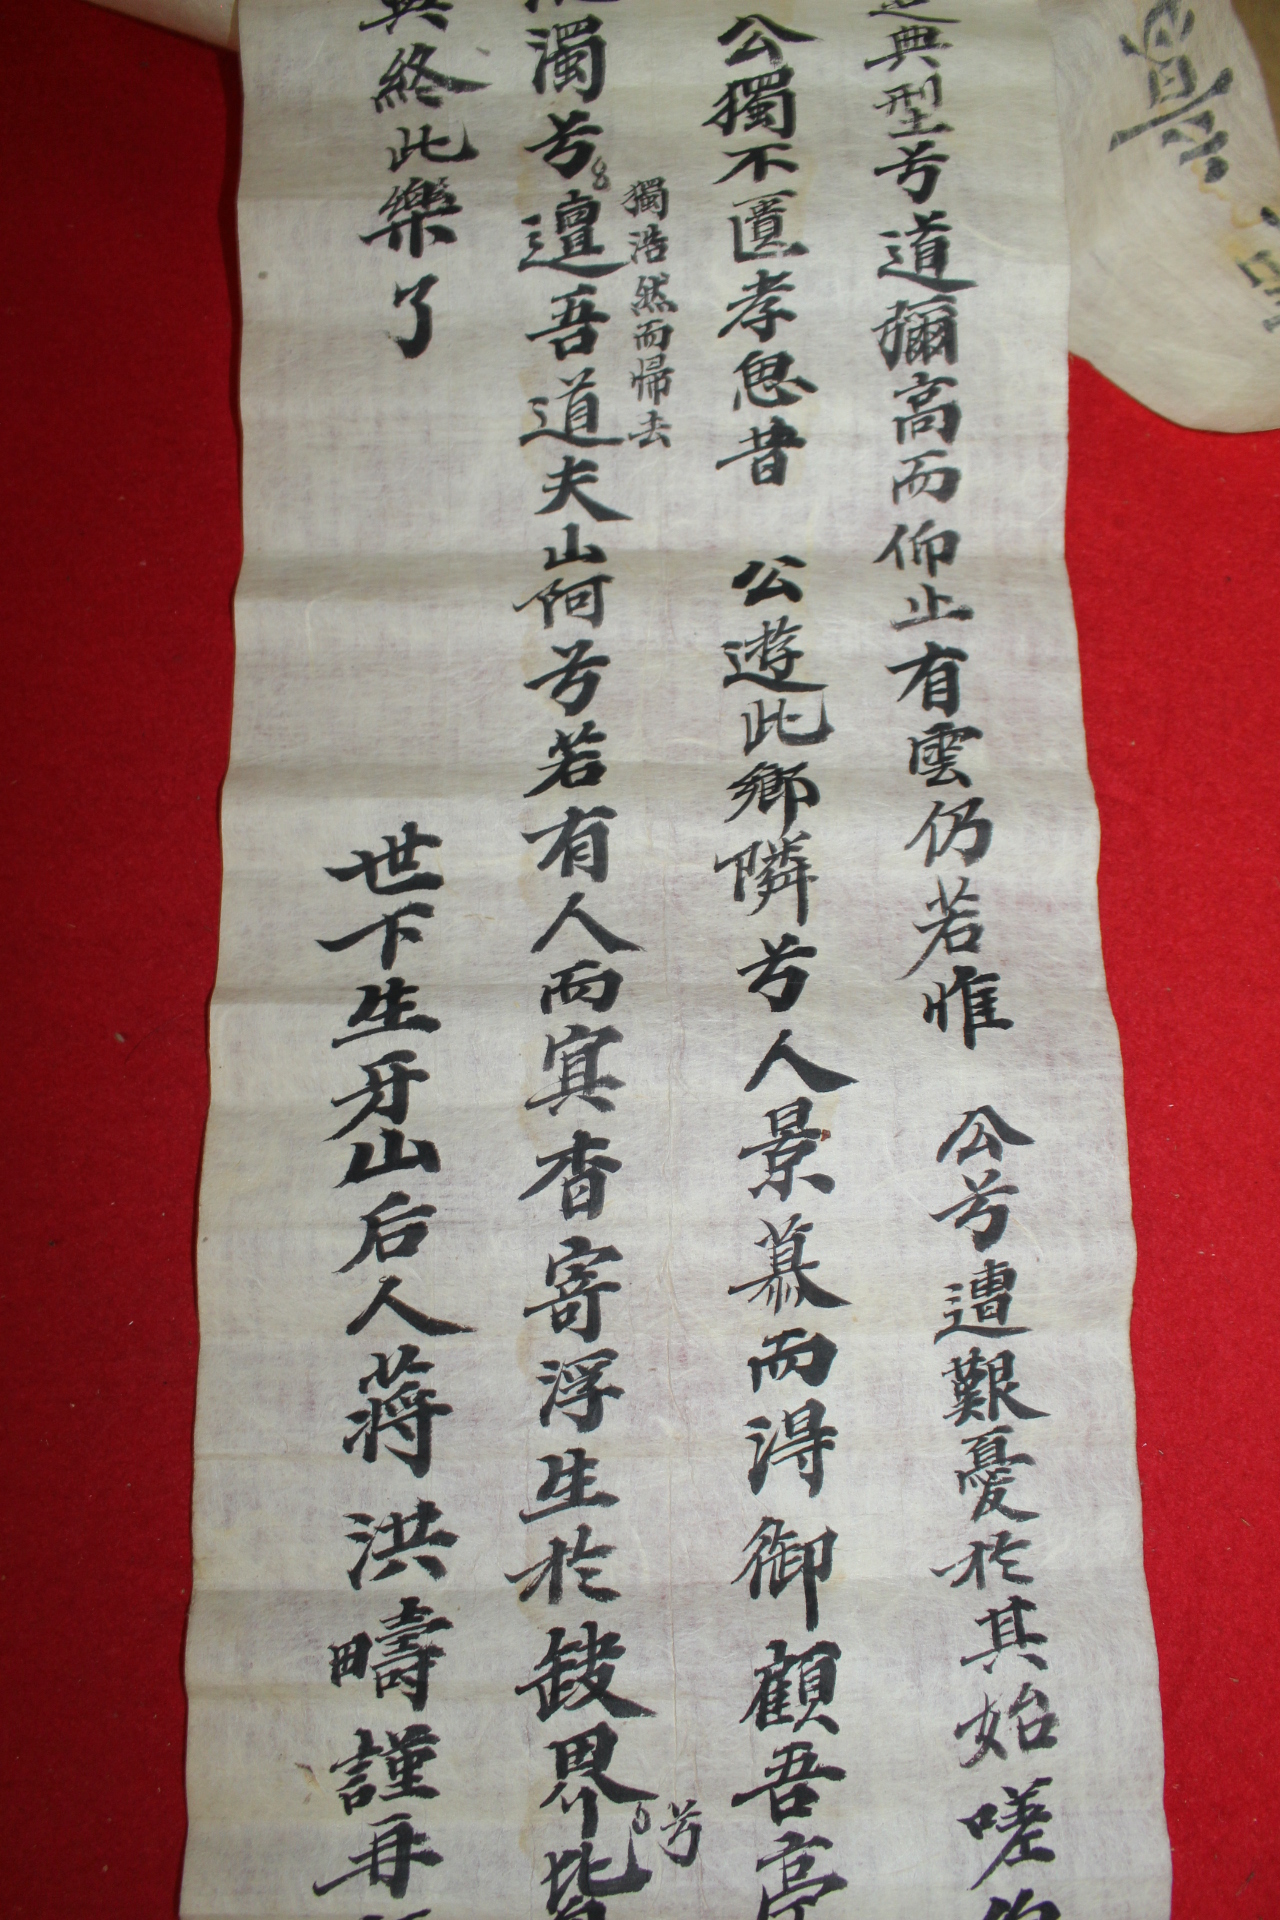 典型兮道彌高而仰止有雲仍若惟 公兮遭艱憂於其始嗟
公獨不匱孝思昔 公遊此鄕隣兮人景慕而得御顧吾亭
獨浩然而帰去
濁兮邅吾道夫山阿兮若有人而冥杳寄浮生於缺界
兮
終此樂了
世下生牙山后人蔣洪疇謹再